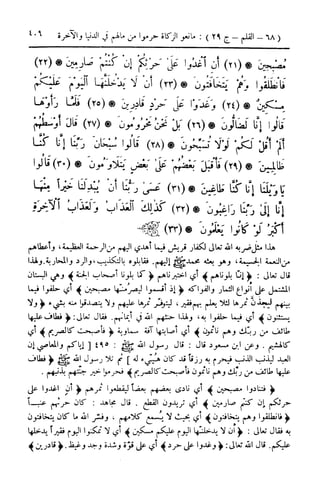 (٦٨ - القلم - ج ٢٩) : مانعو الزكاة حرموا من مالهم في الدنيا والآخرة ٤٠٦
مُصْبِحِينَ * (٢١) أَنِ اغْدُوا عَلَىٰ حَرْثِكُمْ إِن كُنتُمْ صَارِمِينَ * (٢٢)
فَانطَلَقُوا وَهُمْ يَتَخَافَتُونَ * (٢٣) أَن لَّا يَدْخُلَنَّهَا الْيَوْمَ عَلَيْكُم
مِّسْكِينٌ * (٢٤) وَغَدَوْا عَلَىٰ حَرْدٍ قَادِرِينَ * (٢٥) فَلَمَّا رَأَوْهَا
قَالُوا إِنَّا لَضَالُّونَ * (٢٦) بَلْ نَحْنُ مَحْرُومُونَ * (٢٧) قَالَ أَوْسَطُهُمْ
أَلَمْ أَقُل لَّكُمْ لَوْلَا تُسَبِّحُونَ * (٢٨) قَالُوا سُبْحَانَ رَبِّنَا إِنَّا كُنَّا
ظَالِمِينَ * (٢٩) فَأَقْبَلَ بَعْضُهُمْ عَلَىٰ بَعْضٍ يَتَلَاوَمُونَ * (٣٠) قَالُوا
يَا وَيْلَنَا إِنَّا كُنَّا طَاغِينَ * (٣١) عَسَىٰ رَبُّنَا أَن يُبْدِلَنَا خَيْرًا مِّنْهَا
إِنَّا إِلَىٰ رَبِّنَا رَاغِبُونَ * (٣٢) كَذَٰلِكَ الْعَذَابُ وَلَعَذَابُ الْآخِرَةِ
أَكْبَرُ لَوْ كَانُوا يَعْلَمُونَ * (٣٣)
هذا مثل ضربه الله تعالى لكفار قريش فيما أهدى اليهم من الرحمة العظيمة، وأعطاهم
من النعمة الجسيمة، وهو بعثه محمد ﷺ إليهم. فقابلوه بالتكذيب، والرد والمحاربة. ولهذا
قال تعالى : ﴿ إنا بلوناهم ﴾ أي اختبرناهم ﴿ كما بلونا أصحاب الجنة ﴾ وهي البستان
المشتمل على أنواع الثمار والفواكه ﴿ إذ أقسموا ليصرمنّها مصبحين ﴾ أي حلفوا فيما
بينهم ليجذنّ ثمرها ليلا لئلا يعلم بهم فقير، ليتوفر ثمرها عليهم ولا يتصدقوا منه بشيء ﴿ ولا
يستثنون ﴾ أي فيما حلفوا به، ولهذا حنثهم الله في أيمانهم. فقال تعالى : ﴿ فطاف عليها
طائف من ربك وهم نائمون ﴾ أي أصابتها آفة سماوية ﴿ فأصبحت كالصريم ﴾ أي
كالهشيم . وعن ابن مسعود قال : قال رسول الله ﷺ : ٤٩٥ [ إياكم والمعاصي إن
العبد ليذنب الذنب فيحرم به رزقاً قد كان هُيّىء له ] ثم تلا رسول الله ﷺ ﴿ فطاف
عليها طائف من ربك وهم نائمون فأصبحت كالصريم ﴾ قد حرموا خير جنتهم بذنبهم .
﴿ فتنادوا مصبحين ﴾ أي نادى بعضهم بعضاً ليقطعوا ثمرهم ﴿ أن اغدوا على
حرثكم إن كنتم صارمين ﴾ أي تريدون القطع . قال مجاهد : كان حرثهم عنباً
﴿ فانطلقوا وهم يتخافتون ﴾ أي بحيث لا يسمع كلامهم . وفسّر الله ما كان يتخافتون
به فقال تعالى : ﴿ أن لا يدخلنّها اليوم عليكم مسكين ﴾ أي لا تمكنوا اليوم فقيراً يدخلها
عليكم. قال الله تعالى : ﴿ وغدوا على حرد ﴾ أي على قوة وشدة وجد وغيظ. ﴿ قادرين ﴾